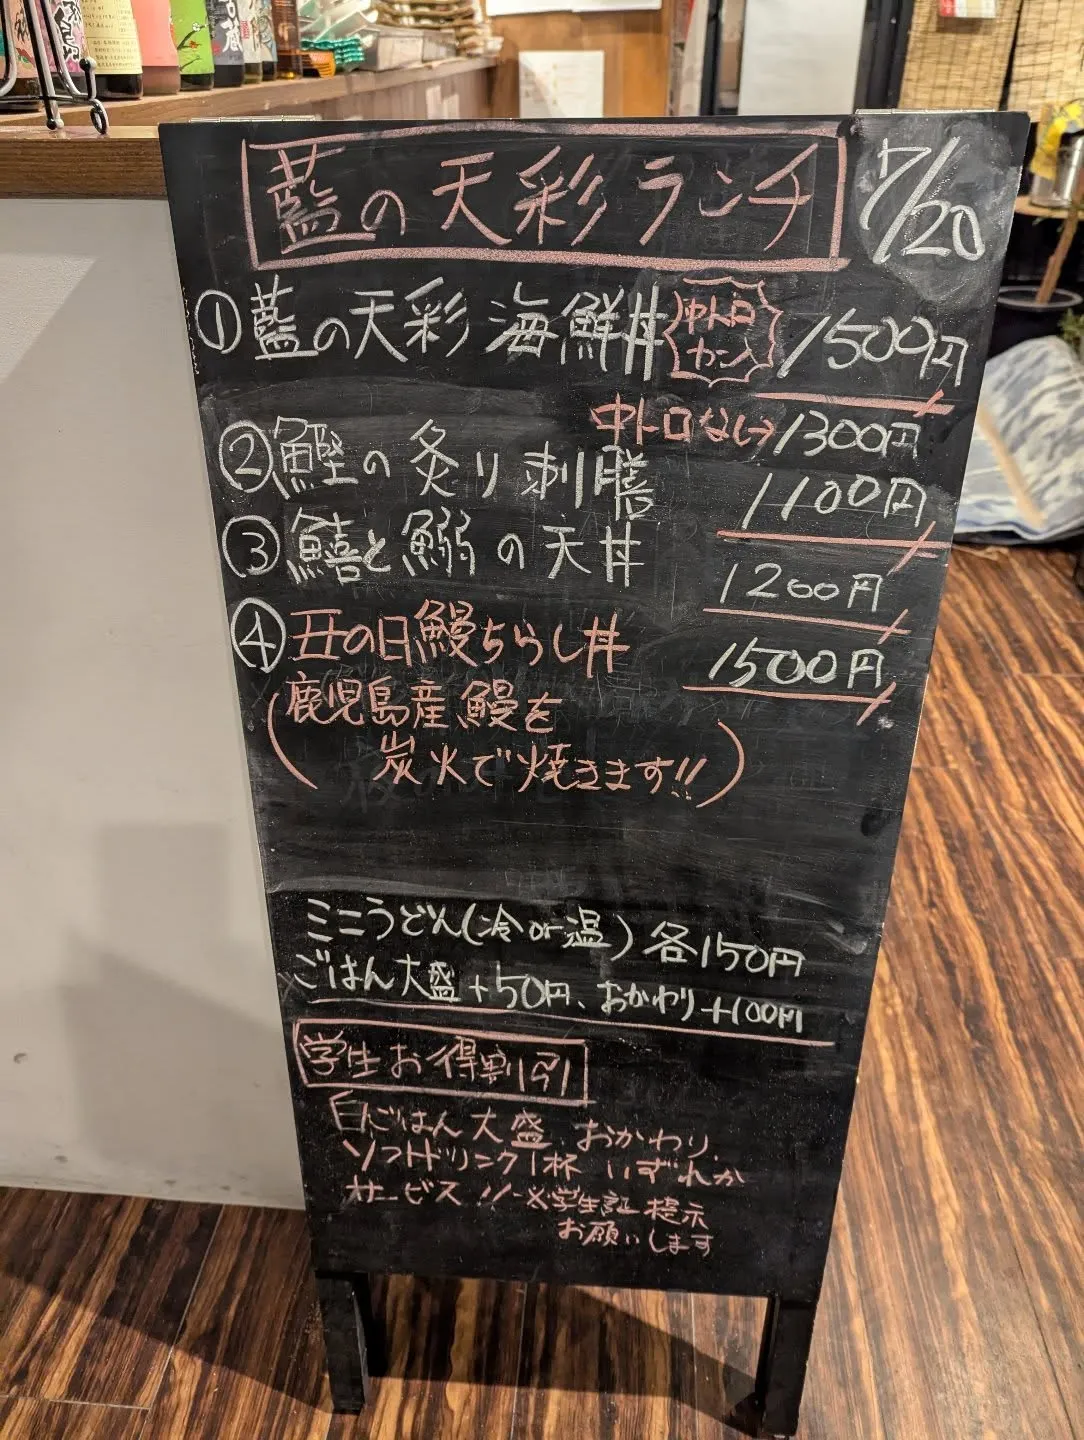 藍の天彩ランチ
7/20
①藍の天彩 海鮮丼 中トロ 1500円
中トロなし→1300円
②鰹の炙り刺膳 1100円
③鱚と鰯の天丼 1200円
④丑の日鰻ちらし丼 1500円
(鹿児島産鰻を
炭火で焼きます!!)
ミニうどん(冷or温)各150円
ごはん大盛+50円、おかわり+100円
学生お得割引
白ごはん大盛、おかわり、
ソフトドリンク1杯 いずれか
サービス!! ※学生証提示
お願いします